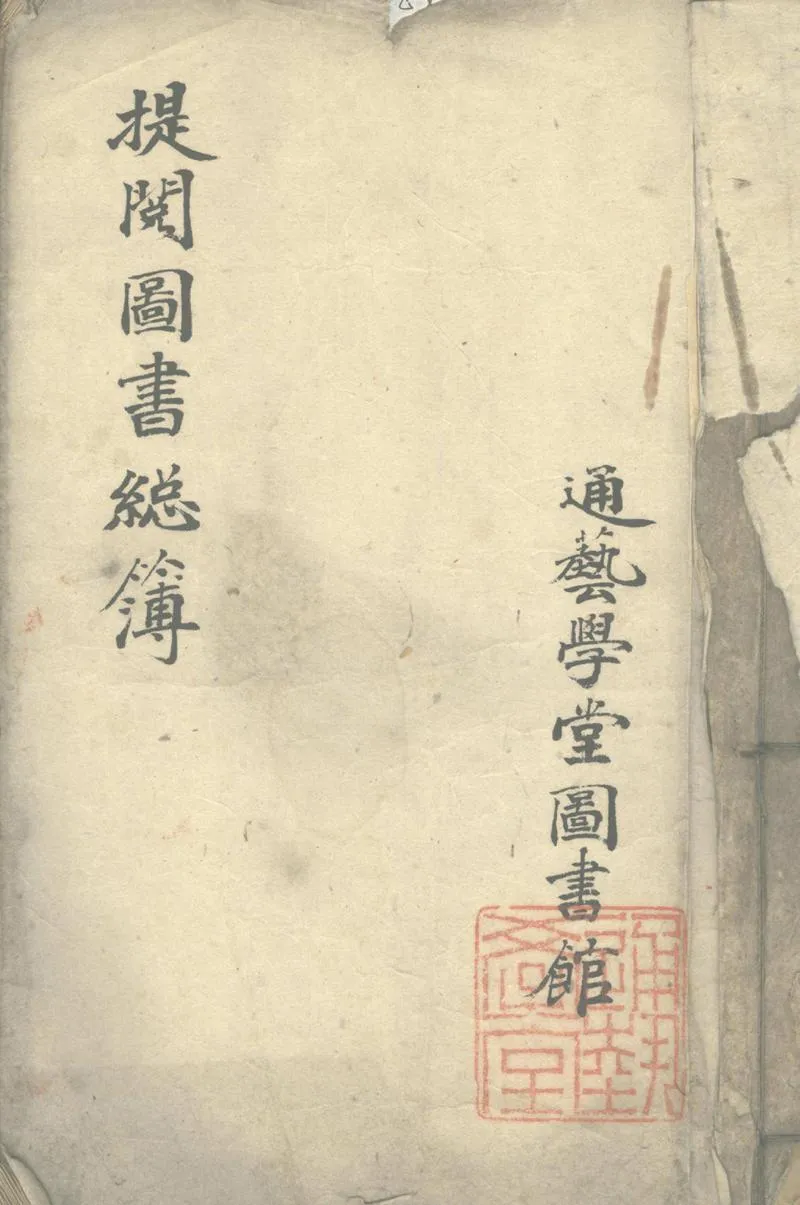 通藝學堂圖書館
提閱圖書総簿